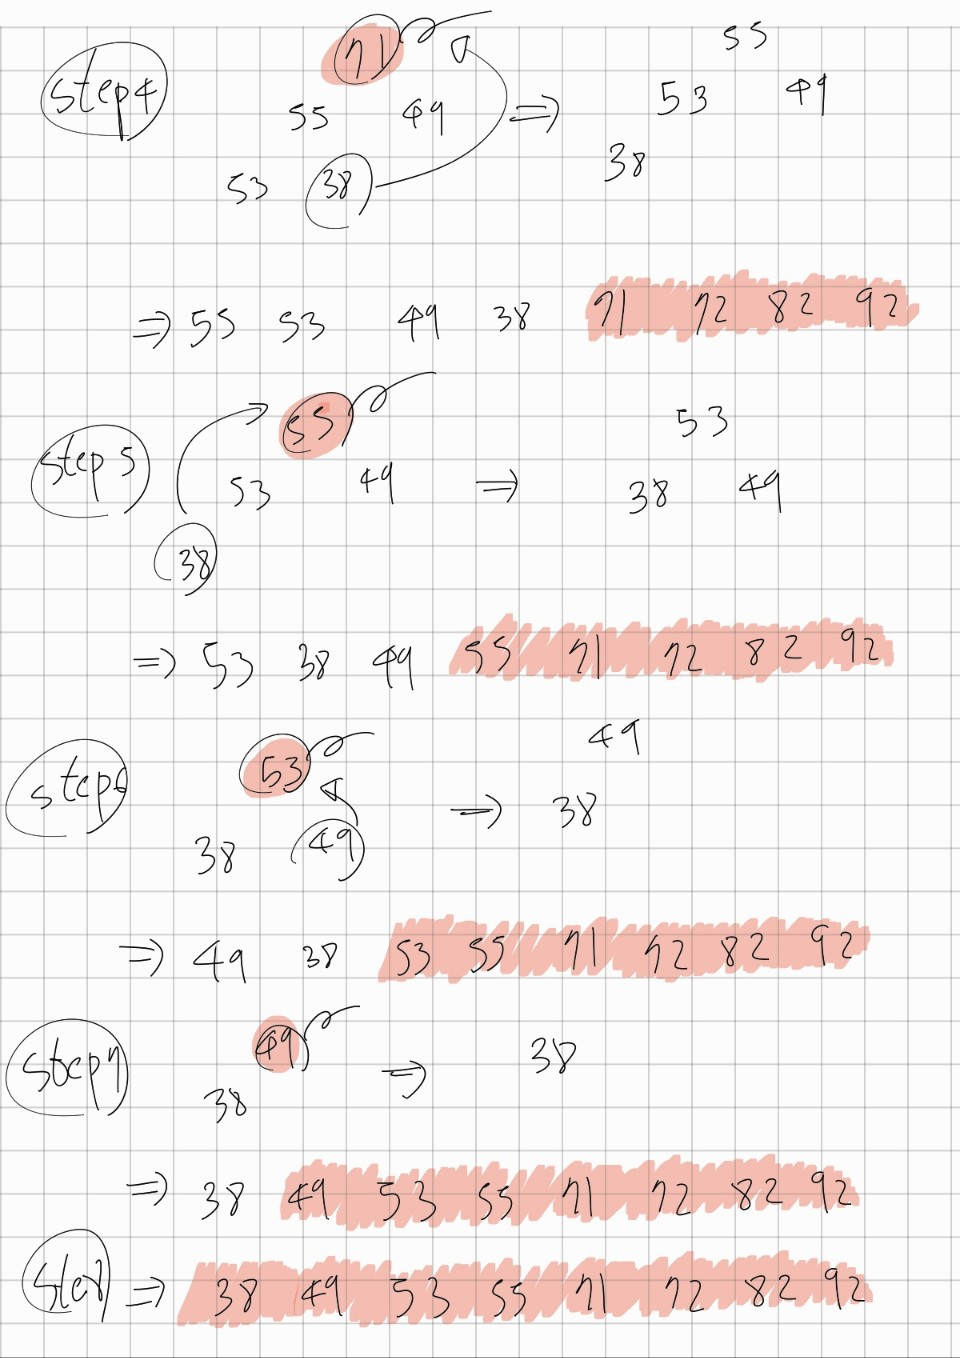 step4
71 55
55 49 ⇒ 53 49
53 38 38
⇒ 55 53 49 38 71 72 82 92
step5
55 53
53 49 ⇒ 38 49
38
⇒ 53 38 49 55 71 72 82 92
step6
53 49
38 49 ⇒ 38
⇒ 49 38 53 55 71 72 82 92
step7
49 ⇒ 38
38
⇒ 38 49 53 55 71 72 82 92
⇒ 38 49 53 55 71 72 82 92